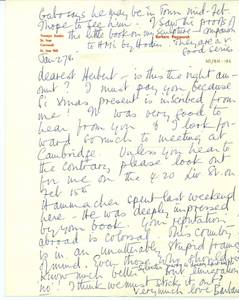 Gabo says he may be in town mid-Feb.
I hope to see him. I saw the proofs of
the little book on my sculpture – companion
to H.M. by Hodin. They are a v.
good series
Trewyn Studio
St. Ives
Cornwall
Barbara Hepworth
Jan 27th
dearest Herbert – is this the right am-
ount? I must pay you because
Xmas present is inscribed from
me! It was very good to
hear from you & I look for-
ward so much to meeting at
Cambridge. Unless you hear
the contrary please look out
for me on the 4.20 Liv St on
Feb 15th
Hammacher spent last weekend
here – He was deeply impressed
by your book. Your reputation
abroad is colossal. This country
is in an unutterably stupid frame
of mind. Even those who
know much better
but emigration
no! I think we must stick it out!
Very much love Barbara